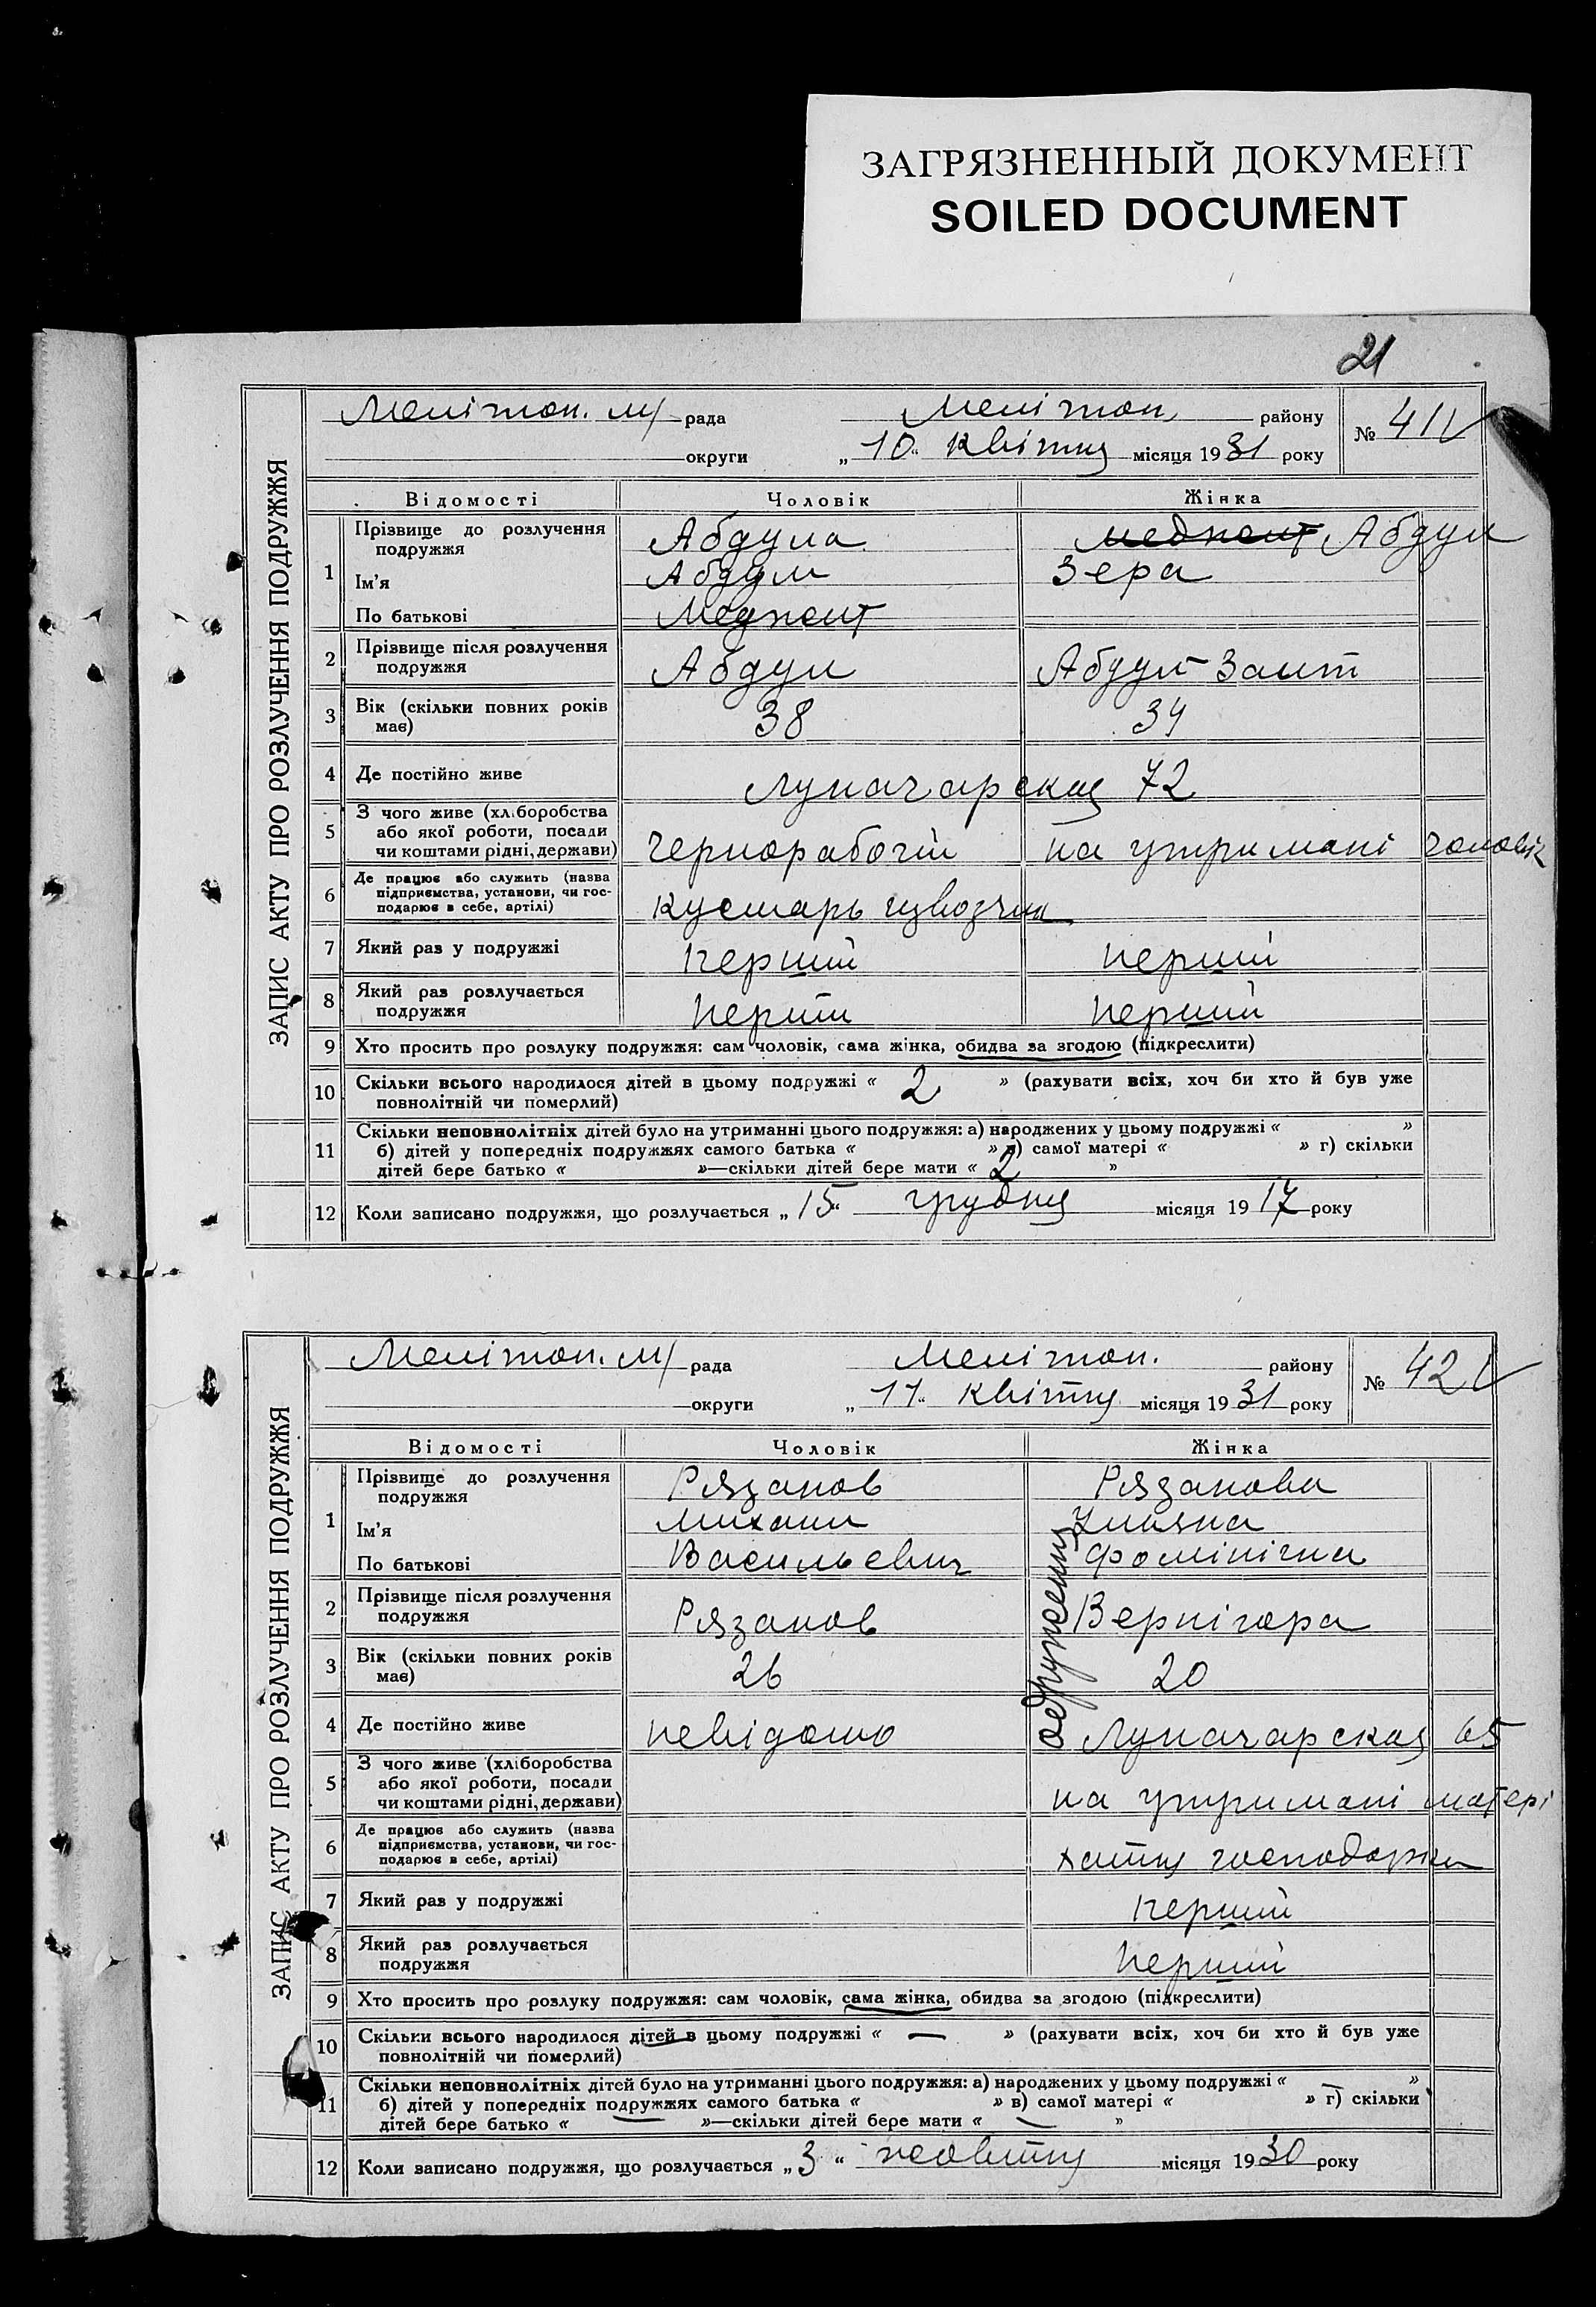 ЗАГРЯЗНЕННЫЙ ДОКУМЕНТ
SOILED DOCUMENT
21
ЗАПИС АКТУ ПРО РОЗЛУЧЕННЯ ПОДРУЖЖЯ
Мелітоп. м/ рада Мелітоп. району № 41
округи „10“ квітня місяця 1931 року
Відомості Чоловік Жінка
1 Прізвище до розлучення подружжя Абдула Абдул
Ім'я Абдул Зера
По батькові
2 Прізвище після розлучення подружжя Абдул Абдул-Заит
3 Вік (скільки повних років має) 38 34
4 Де постійно живе Луначарская 72
5 З чого живе (хліборобства або якої роботи, посади чи коштами рідні, держави) чернорабочій на утримані чоловік
6 Де працює або служить (назва підприємства, установи, чи господарює в себе, артілі) кустарь
7 Який раз у подружжі перший перший
8 Який раз розлучається подружжя перший перший
9 Хто просить про розлуку подружжя: сам чоловік, сама жінка, обидва за згодою (підкреслити)
10 Скільки всього народилося дітей в цьому подружжі « 2 » (рахувати всіх, хоч би хто й був уже
повнолітній чи померлий)
11 Скільки неповнолітніх дітей було на утриманні цього подружжя: а) народжених у цьому подружжі « »
б) дітей у попередніх подружжях самого батька « » в) самої матері « » г) скільки
дітей бере батько « »—скільки дітей бере мати « 2 »
12 Коли записано подружжя, що розлучається „15“ грудня місяця 1917 року
ЗАПИС АКТУ ПРО РОЗЛУЧЕННЯ ПОДРУЖЖЯ
Мелітоп. м/ рада Мелітоп. району № 42
округи „11“ квітня місяця 1931 року
Відомості Чоловік Жінка
1 Прізвище до розлучення подружжя Рязанов Рязанова
Ім'я Михаил Уляна
По батькові Васильевич Фомінічна
2 Прізвище після розлучення подружжя Рязанов Вернігора
3 Вік (скільки повних років має) 26 20
4 Де постійно живе невідомо Луначарская 65
5 З чого живе (хліборобства або якої роботи, посади чи коштами рідні, держави) на утримані матері
6 Де працює або служить (назва підприємства, установи, чи господарює в себе, артілі) хатня господарка
7 Який раз у подружжі перший
8 Який раз розлучається подружжя перший
9 Хто просить про розлуку подружжя: сам чоловік, сама жінка, обидва за згодою (підкреслити)
10 Скільки всього народилося дітей в цьому подружжі « — » (рахувати всіх, хоч би хто й був уже
повнолітній чи померлий)
11 Скільки неповнолітніх дітей було на утриманні цього подружжя: а) народжених у цьому подружжі « — »
б) дітей у попередніх подружжях самого батька « » в) самої матері « » г) скільки
дітей бере батько « — »—скільки дітей бере мати « — »
12 Коли записано подружжя, що розлучається „3“ жовтня місяця 1930 року